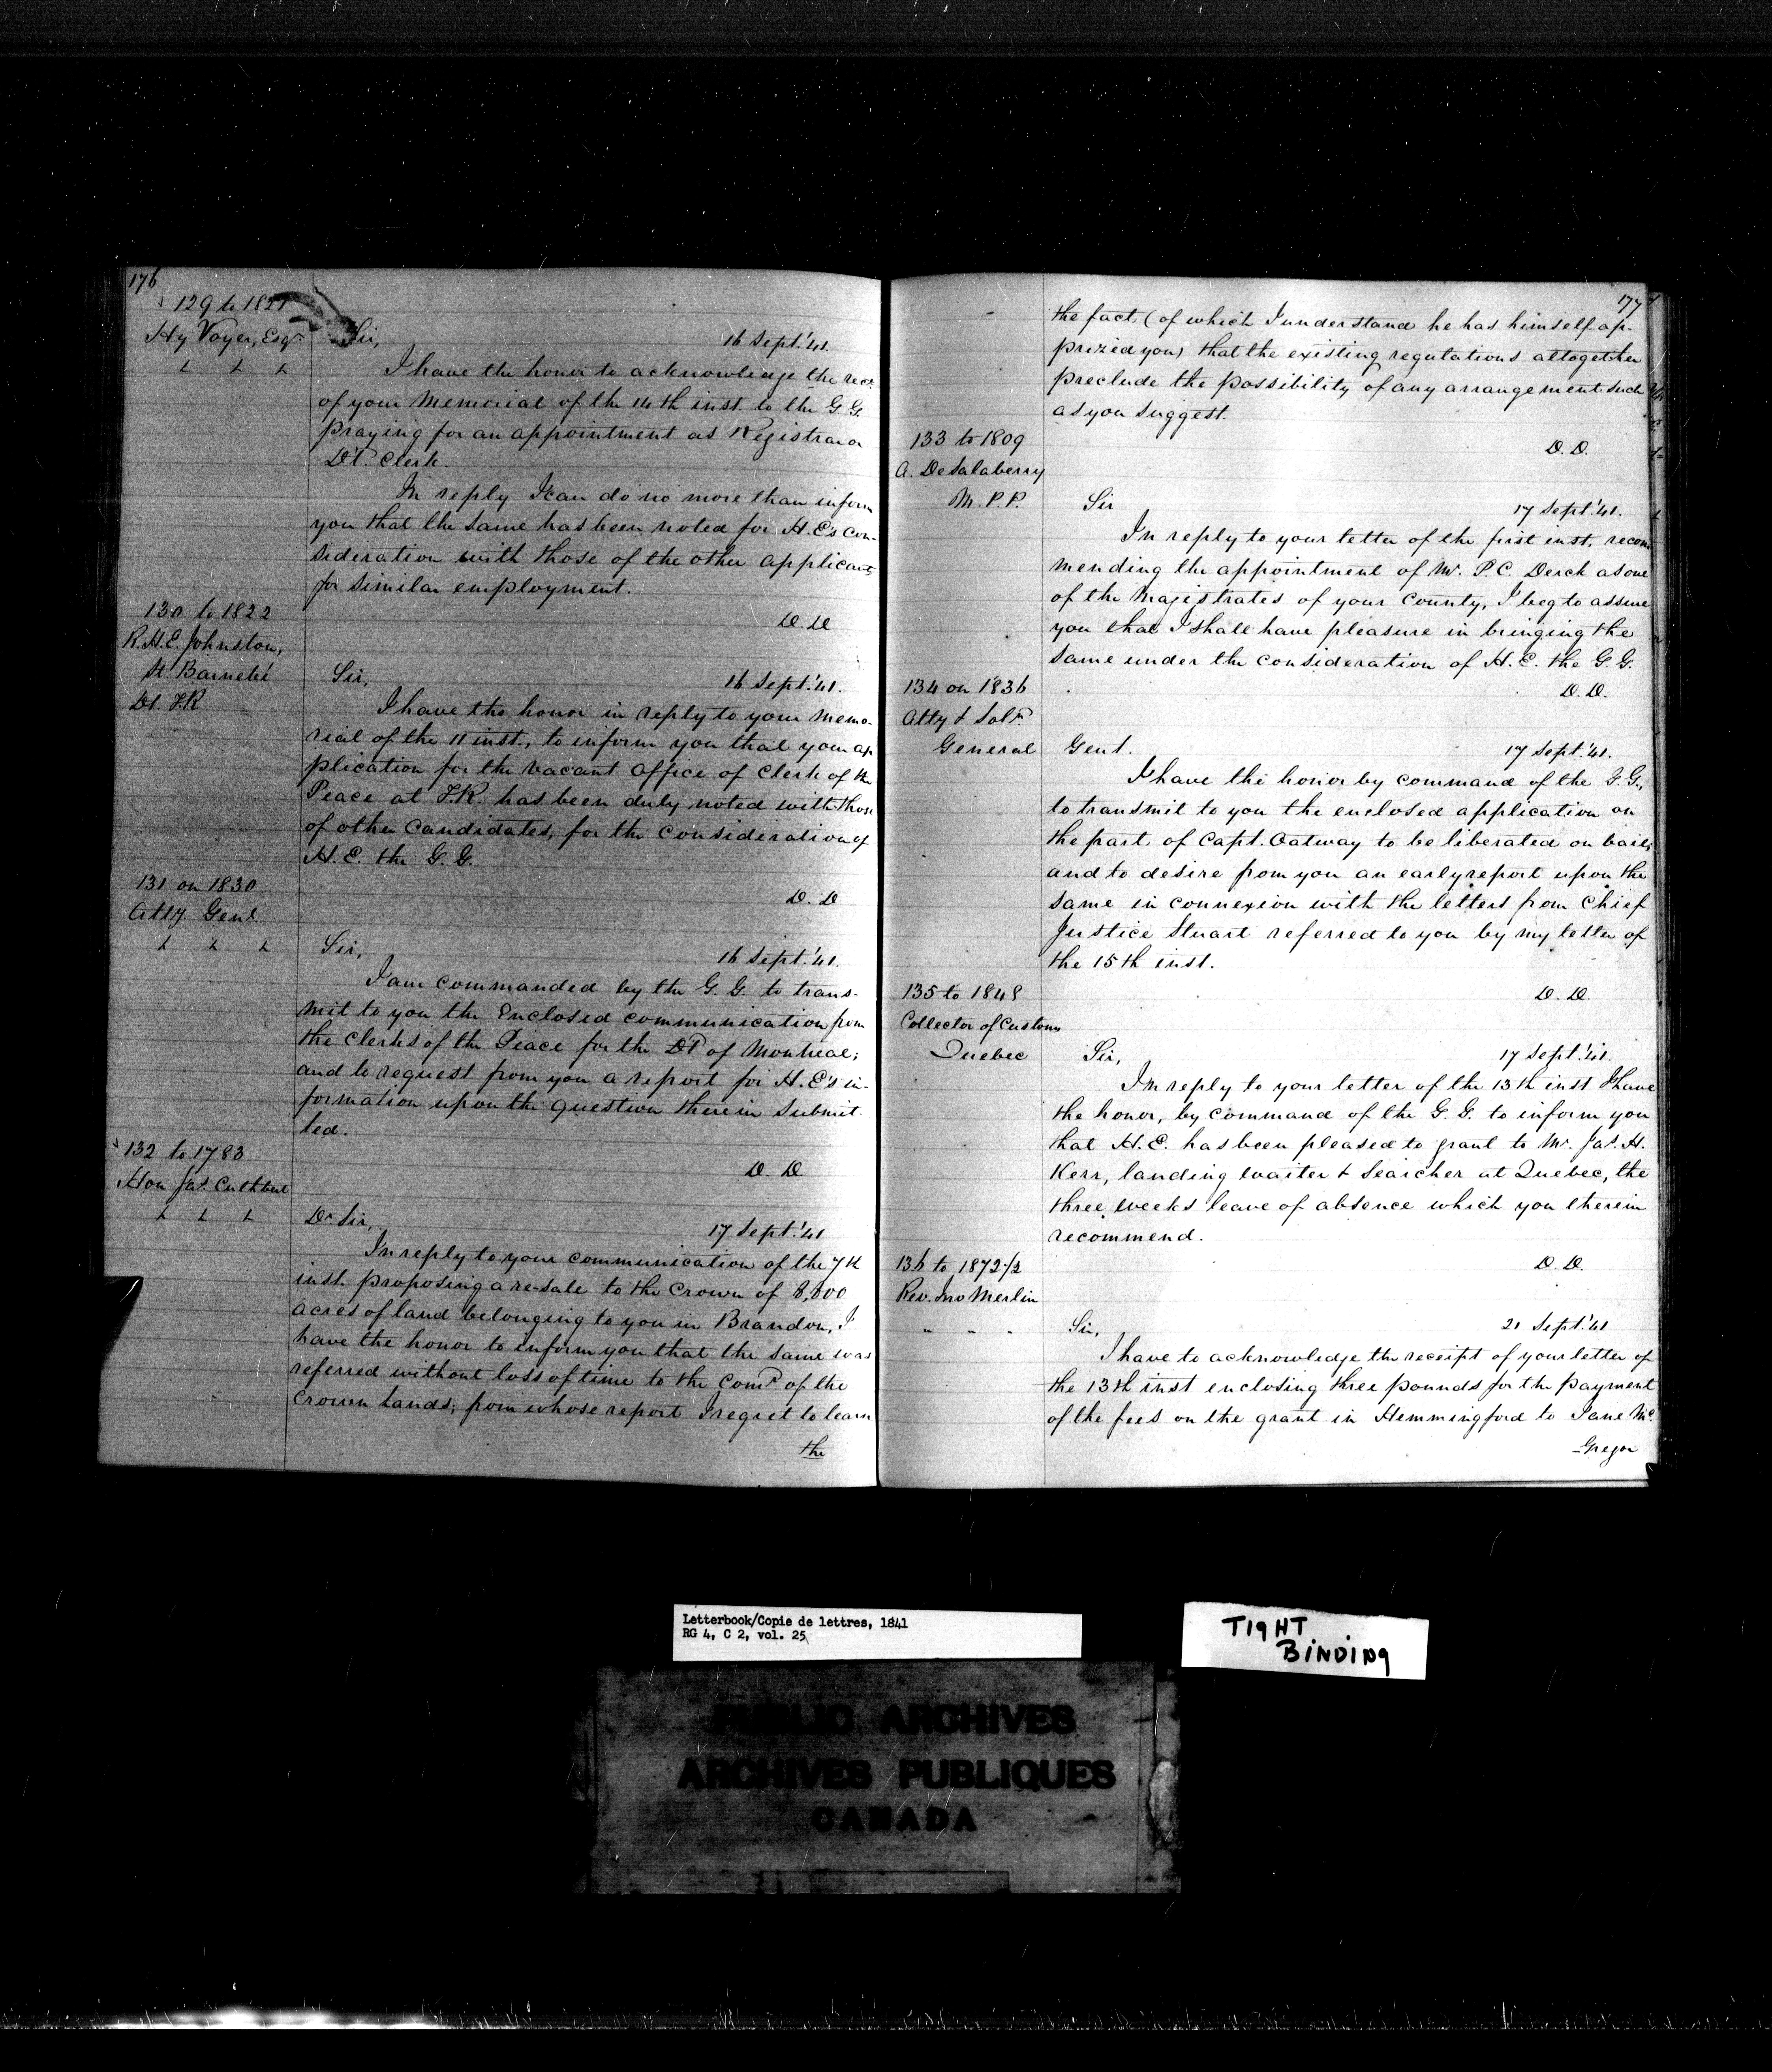 176
129 to 1821
Hy Voyer, Esqr
Sir,
16 Sept. '41.
I have the honor to acknowledge the rect
of your Memorial of the 14th inst. to the G. G.
praying for an appointment as Registrar or
Dt. Clerk.
In reply I can do no more than inform
you that the same has been noted for H. E's con-
sideration with those of the other applicants
for similar employment.
D. D
130 to 1822
R. H. E. Johnston,
St. Barnabé
Dt. T. R
Sir,
16 Sept. '41.
I have the honor in reply to your memo-
rial of the 11 inst., to inform you that your ap
plication for the vacant office of Clerk of the
Peace at T. R. has been duly noted with those
of other candidates, for the consideration of
H. E. the G. G.
D. D
131 on 1830
Atty. Genl.
Sir,
16 Sept. '41.
I am commanded by the G. G. to trans-
mit to you the Enclosed communication from
the Clerks of the Peace for the Dt of Montreal;
and to request from you a report for H. E's in-
formation upon the question therein submit-
ted.
D. D
132 to 1783
Hon Jas. Cuthbert
Dr Sir,
17 Sept. '41
In reply to your communication of the 7th
inst. proposing a re-sale to the Crown of 8,800
acres of land belonging to you in Brandon, I
have the honor to inform you that the same was
referred without loss of time to the Comr. of the
Crown Lands; from whose report I regret to learn
the
177
the fact (of which I understand he has himself ap-
prized you) that the existing regulations altogether
preclude the possibility of any arrangement such
as you suggest.
D. D.
133 to 1809
A. DeSalaberry
M. P. P.
Sir
17 Sept. '41.
In reply to your letter of the first inst, recom
mending the appointment of Mr. P. C. Derck as one
of the Magistrates of your County, I beg to assure
you that I shall have pleasure in bringing the
same under the consideration of H. E. the G. G.
D. D.
134 on 1836
Atty & Solr.
General
Gent.
17 Sept. '41.
I have the honor by command of the G. G.,
to transmit to you the enclosed application on
the part of Capt. Oatway to be liberated on bail;
and to desire from you an early report upon the
same in connexion with the letters from Chief
Justice Stuart referred to you by my letter of
the 15th inst.
D. D.
135 to 1848
Collector of Customs
Quebec
Sir,
17 Sept. '41.
In reply to your letter of the 13th inst I have
the honor, by command of the G. G. to inform you
that H. E. has been pleased to grant to Mr. Jas. H.
Kerr, landing waiter & Searcher at Quebec, the
three weeks leave of absence which you therein
recommend.
D. D.
136 to 1872 1/2
Rev. Jno Merlin
" " "
Sir,
21 Sept. '41
I have to acknowledge the receipt of your letter of
the 13th inst enclosing three pounds for the payment
of the fees on the grant in Hemmingford to Jane Mc.
-Gregor
Letterbook/Copie de lettres, 1841
RG 4, C 2, vol. 25
TIGHT
BINDING
PUBLIC ARCHIVES
ARCHIVES PUBLIQUES
CANADA